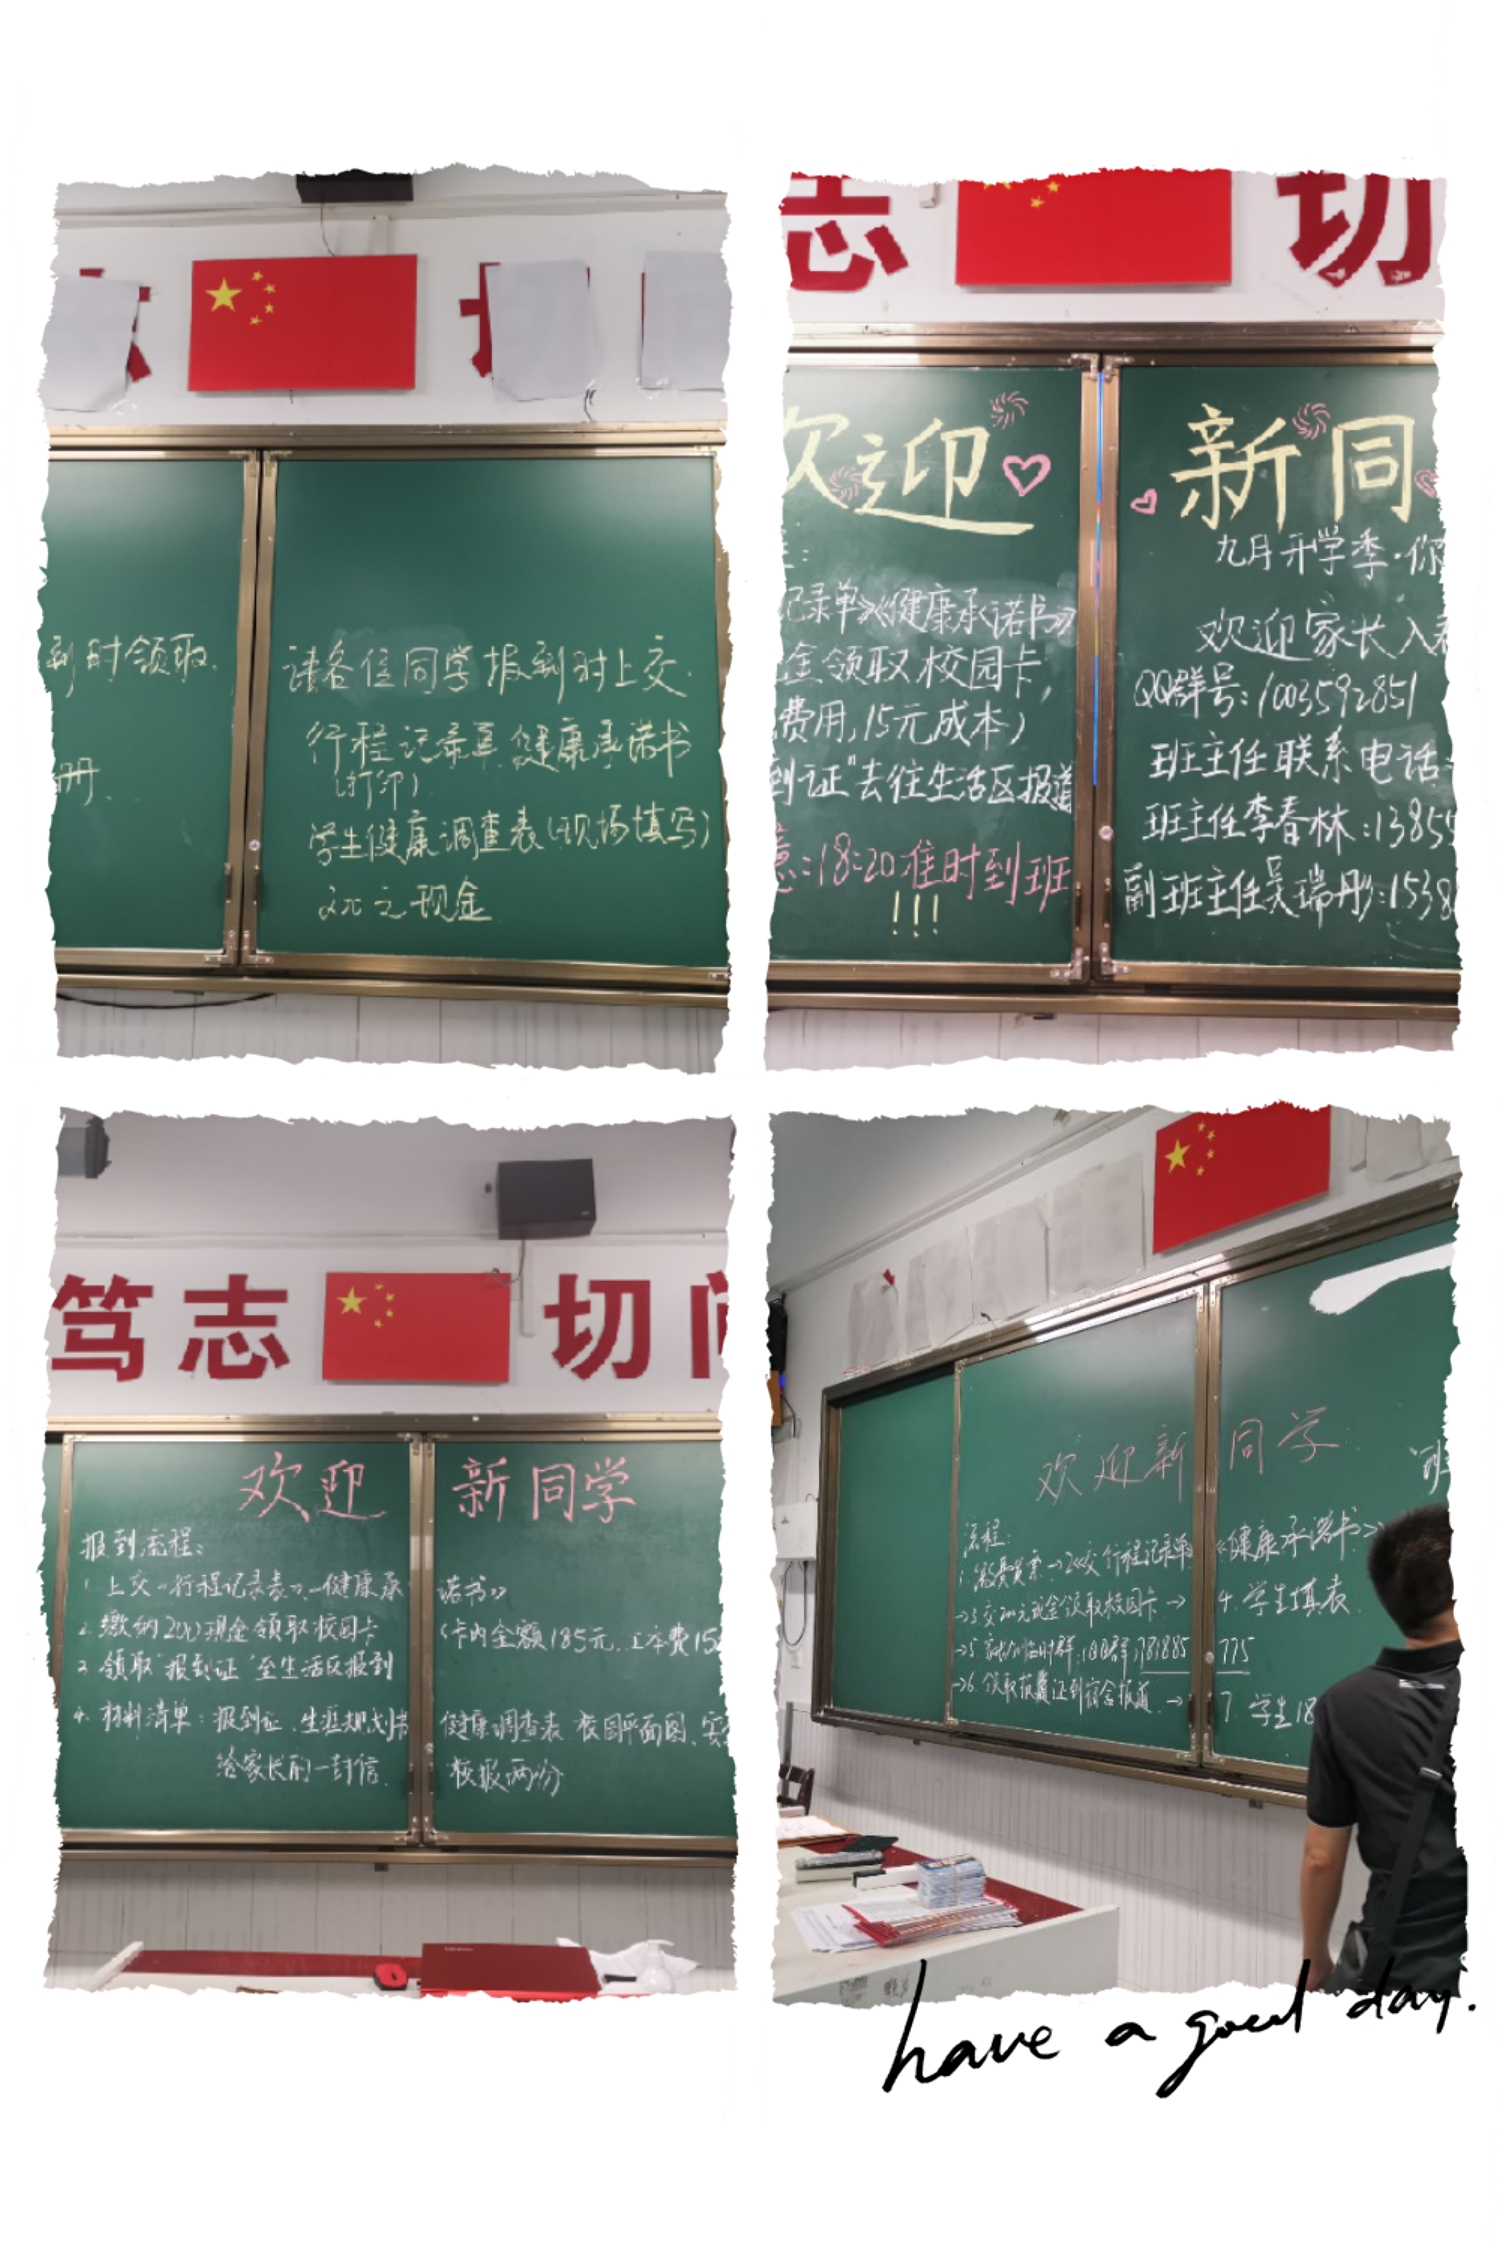 到时领取.
册.
请各位同学报到时上交.
行程记录单.健康承诺书
(打印)
学生健康调查表(现场填写)
200元现金
志 切
欢迎
新同
九月开学季·你
记录单》《健康承诺书》
金领取校园卡,
费用,15元成本)
到证"去往生活区报道
意:18:20准时到班
!!!
欢迎家长入
QQ群号:1003592851
班主任联系电话:
班主任李春林:13855
副班主任吴瑞彤:1538
笃志 切问
欢迎 新同学
报到流程:
1. 上交《行程记录表》、《健康承诺书》
2. 缴纳200现金领取校园卡(卡内金额185元.工本费15
3 领取"报到证"至生活区报到
4. 材料清单:报到证.生涯规划书 健康调查表.校园平面图.
给家长的一封信. 校报两份
欢迎新同学
流程:
1.缴费发票→2《交行程记录单》《健康承诺书》
→3交200元现金领取校园卡→4.学生填表
781885775
→6.领取报到证到宿舍报道.→7.学生18
have a good day.